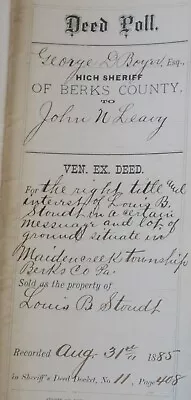 Deed Poll.
George D Boyer, Esq.,
HIGH SHERIFF
OF BERKS COUNTY.
TO
John N Leavy
VEN. EX. DEED.
For the right title and
interest of Louis B.
Stoudt in a certain
messuage and lot of
ground situate in
Maidencreek township
Berks Co Pa.
Sold as the property of
Louis B Stoudt
Recorded Aug 31st 1885
in Sheriff's Deed Docket, No. 11, Page 408